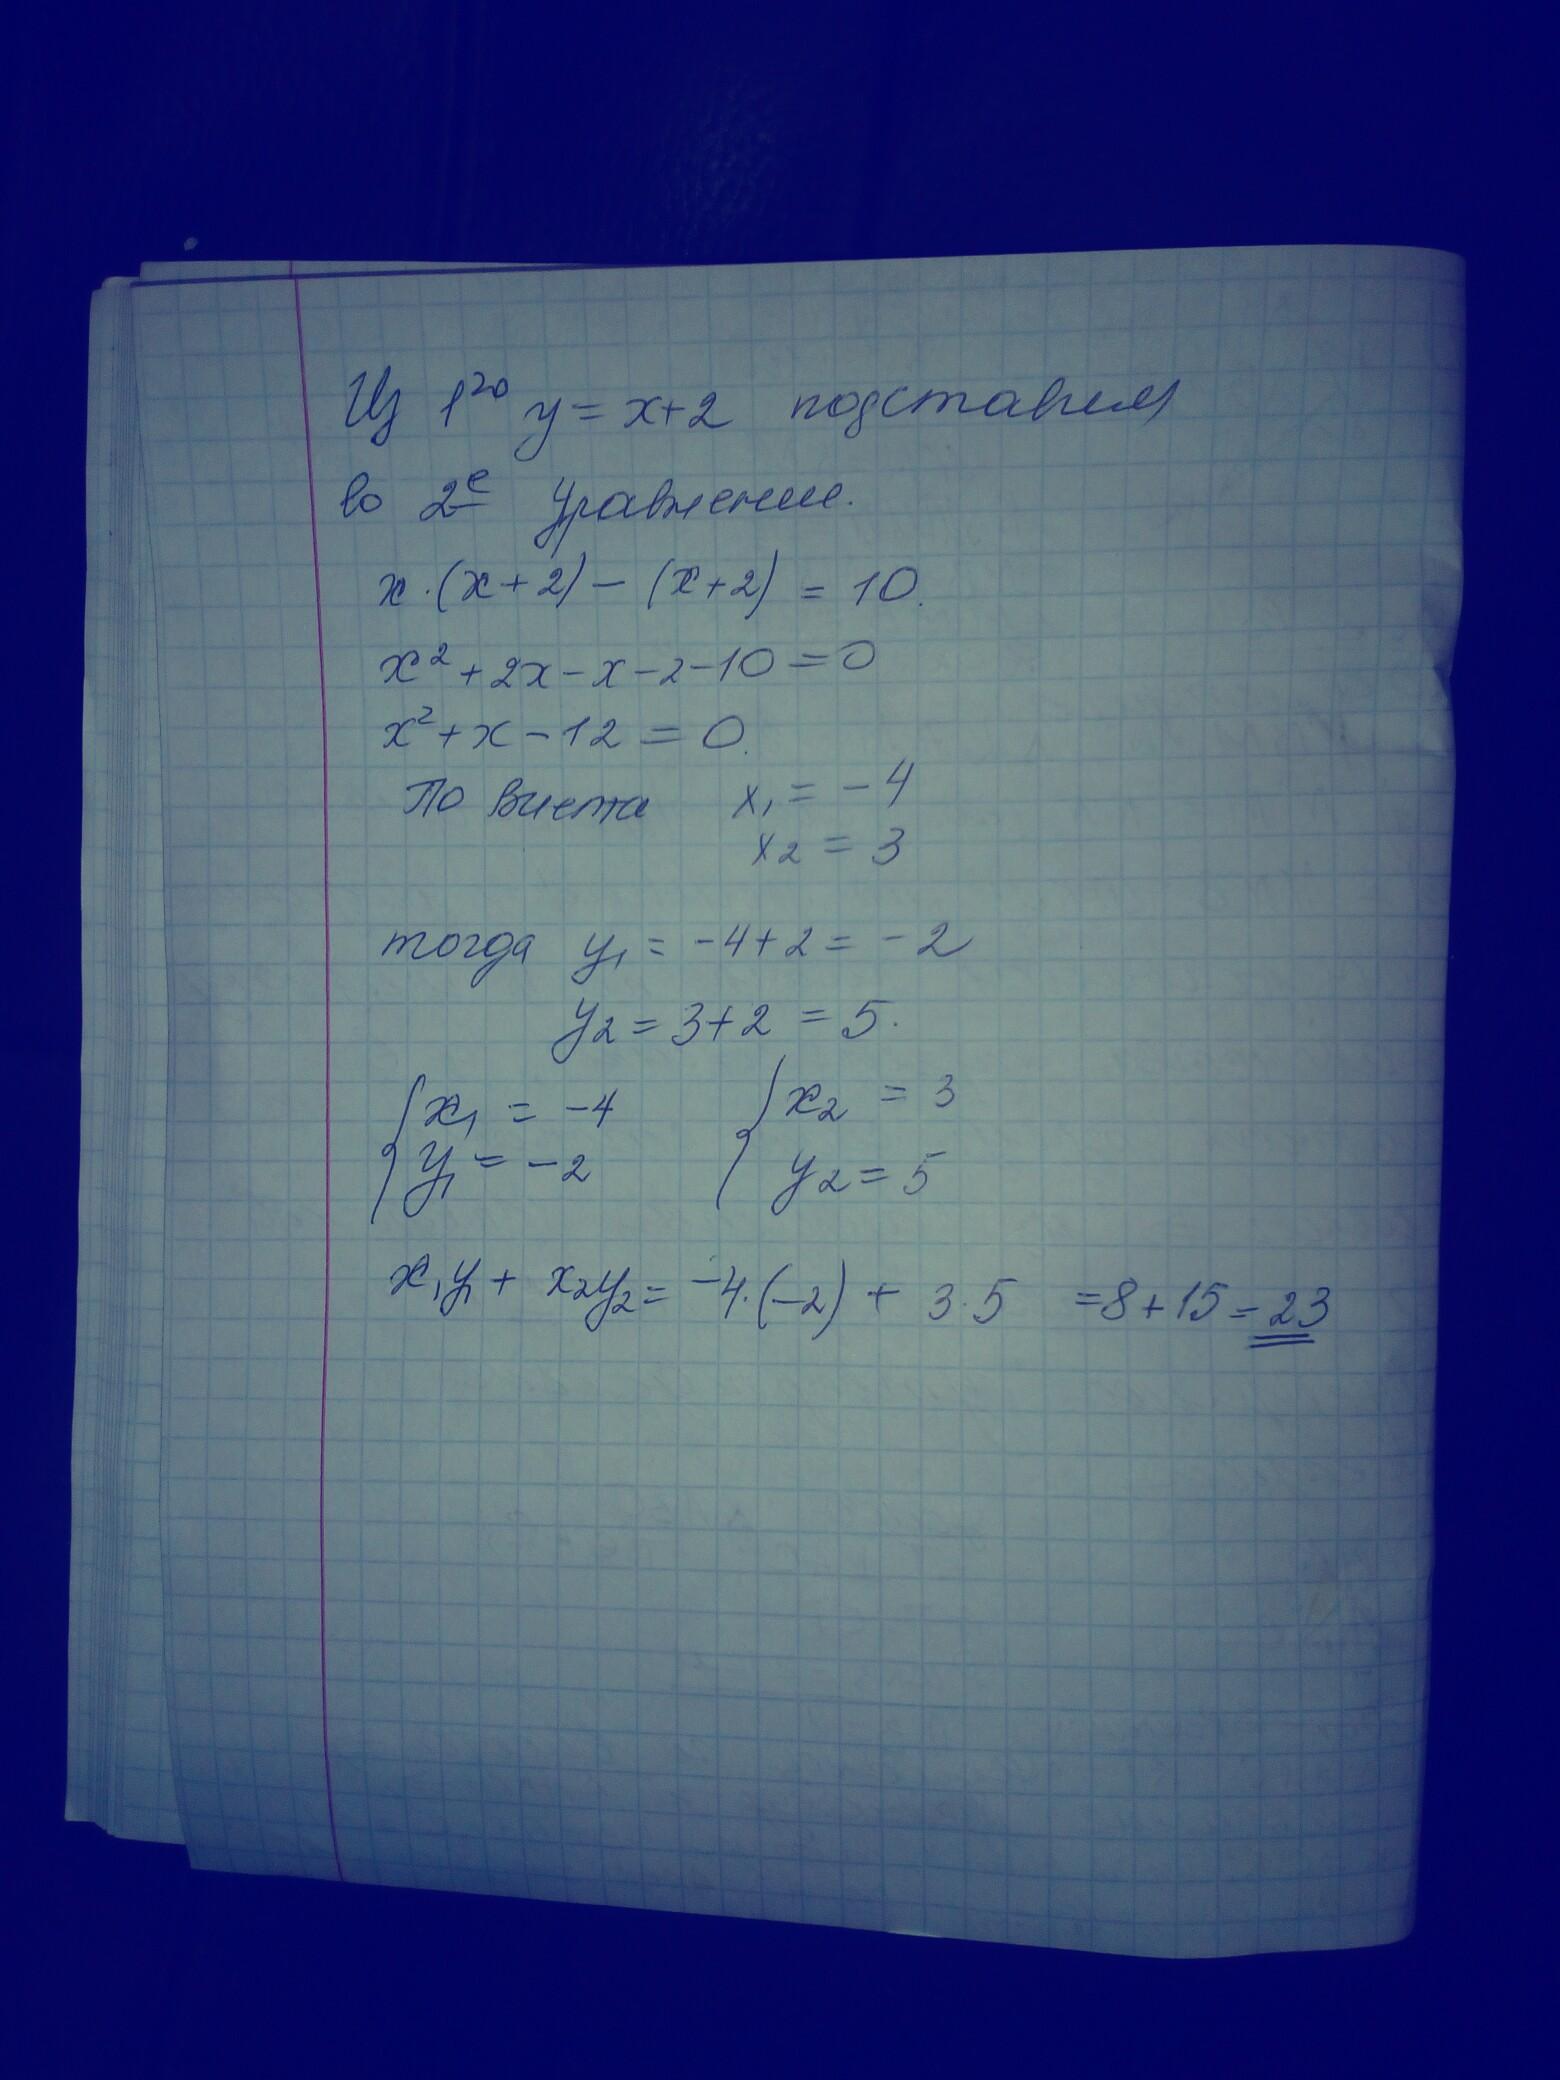 Из 1го y = x+2 подставим
во 2е Уравнение.
x·(x+2) − (x+2) = 10.
x² + 2x − x − 2 − 10 = 0
x² + x − 12 = 0.
По Виета x₁ = −4
x₂ = 3
тогда y₁ = −4+2 = −2
y₂ = 3+2 = 5.
{ x₁ = −4 { x₂ = 3
y₁ = −2 y₂ = 5
x₁y₁ + x₂y₂ = −4·(−2) + 3·5 = 8+15 = 23